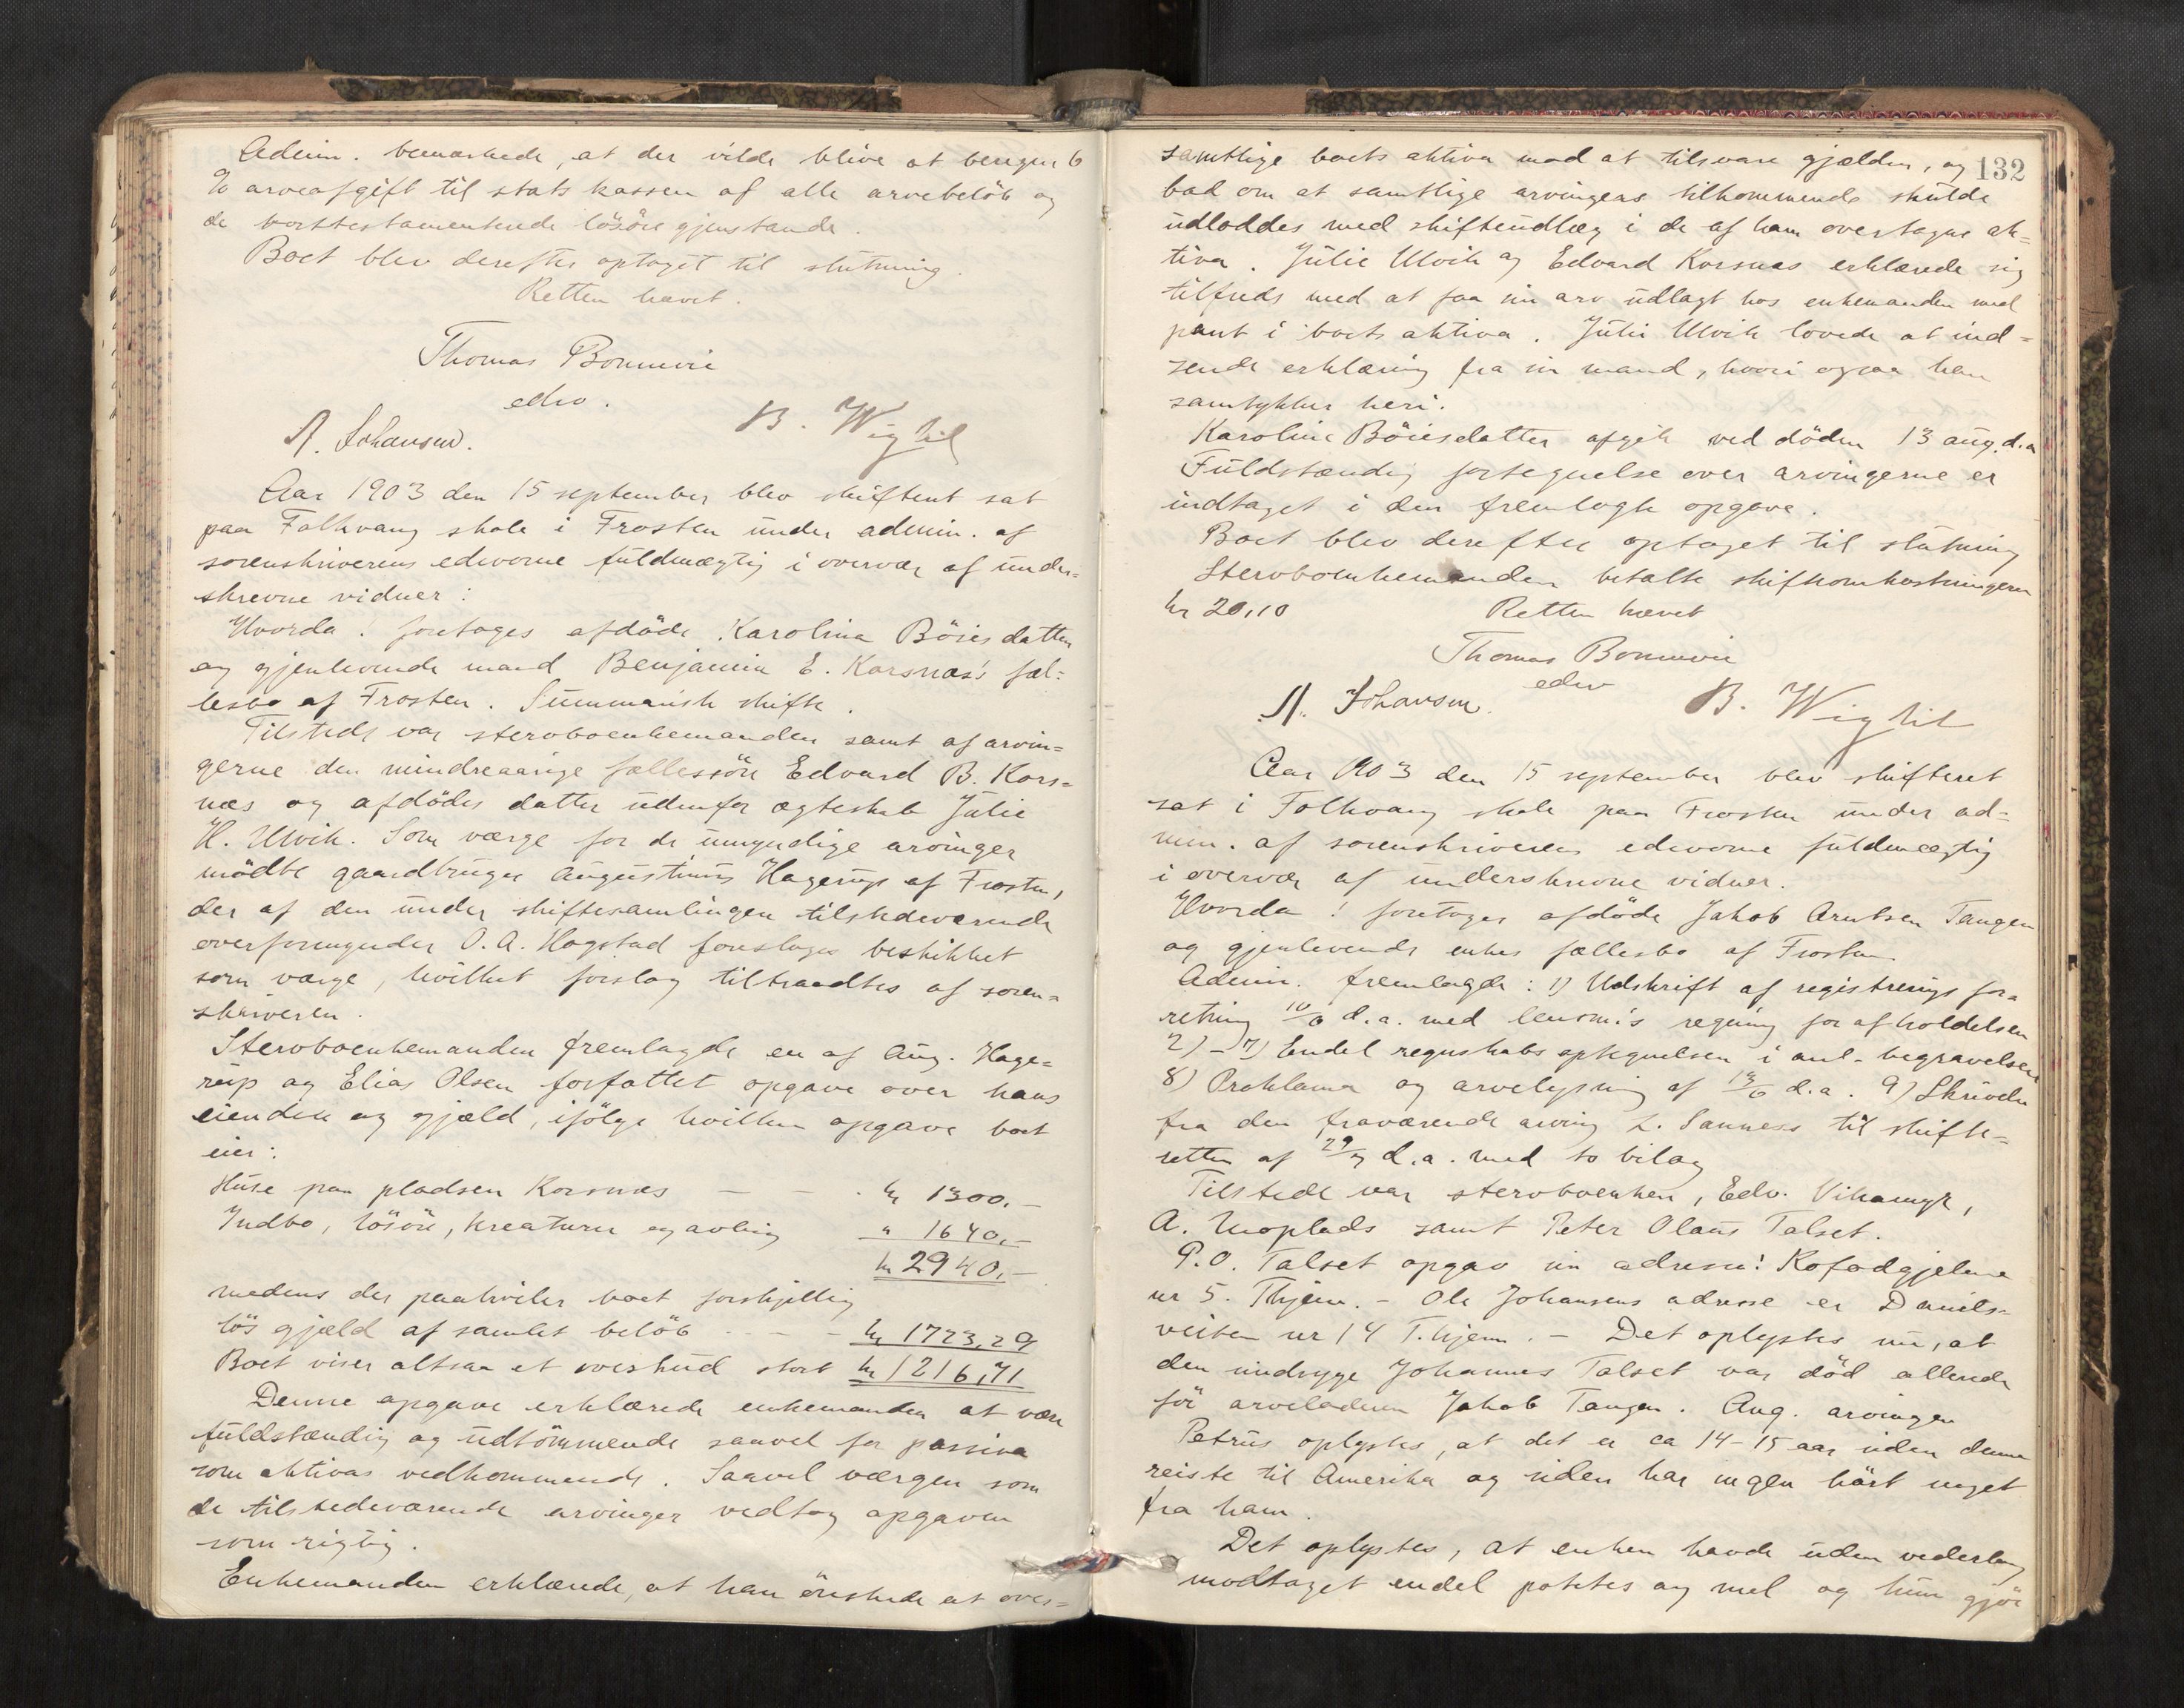 Admin. bemærkede, at der vilde blive at beregne 6
% arveafgift til stats kassen af alle arvebeløb og
de borttestamenterede løsøre gjenstande.
Boet blev derefter optaget til slutning.
Retten hævet.
Thomas Bonnevie
edsv.
A. Johansen. B. Wigtil
Aar 1903 den 15 september blev skifteret sat
paa Folkvang skole i Frosten under admin. af
sorenskriverens edsvorne fuldmægtig i overvær af under-
skrevne vidner:
Hvorda. foretoges afdøde Karolina Böiesdatter
og gjenlevende mand Benjamin E. Korsnæs's fæl-
lesbo af Frosten. Summarisk skifte.
Tilstede var stervboenkemanden samt af arvin-
gerne den mindreaarige fællessön Edvard B. Kors-
næs og afdödes datter udenfor ægteskab Julie
H. Ulvik. Som værge for de umyndige arvinger
mödte gaardbruger Augustinus Hagerup af Frosten,
der af den under skiftesamlingen tilstedeværende
overformynder O. A. Hogstad foresloges beskikket
som værge, hvilket forslag tiltraadtes af soren-
skriveren.
Stervboenkemanden fremlagde en af Aug. Hage-
rup og Elias Olsen forfattet opgave over hans
eiendele og gjæld, ifölge hvilken opgave boet
eier:
Huse paa pladsen Korsnæs — — kr 1300.-
Indbo, lösöre, kreaturer og avling " 1640,-
kr 2940,-
medens der paahviler boet forskjellig
lös gjæld af samlet belöb - - - kr 1723,29
Boet viser altsaa et overskud stort kr 1216,71
Denne opgave erklærede enkemanden at være
fuldstændig og udtömmende saavel for passiva
som aktivas vedkommende. Saavel værgen som
de tilstedeværende arvinger vedtog opgaven
som rigtig.
Enkemanden erklærede, at han önskede at over-
132
samtlige boets aktiva mod at tilsvare gjælden, og
bad om at samtlige arvingers tilkommende skulde
udloddes med skifteudlæg i de af ham overtagne ak-
tiva. Julie Ulvik og Edvard Korsnæs erklærede sig
tilfreds med at faa sin arv udlagt hos enkemanden med
pant i boets aktiva. Julie Ulvik lovede at ind-
sende erklæring fra sin mand, hvori ogsaa han
samtykker heri.
Karoline Böiesdatter afgik ved döden 13 aug. d.a
Fuldstændig fortegnelse over arvingerne er
indtaget i den fremlagte opgave.
Boet blev derefter optaget til slutning
Stervboenkemanden betalte skifteomkostningerne
kr 20,10 Retten hævet
Thomas Bonnevie
edsv
A. Johansen. B. Wigtil
Aar 1903 den 15 september blev skifteret
sat i Folkvang skole paa Frosten under ad-
min. af sorenskriverens edsvorne fuldmægtig
i overvær af underskrevne vidner.
Hvorda! foretoges afdöde Jakob Arntsen Tangen
og gjenlevende enkes fællesbo af Frosten
Admin. fremlagde: 1) Udskrift af registrerings for-
retning 10/6 d.a. med lensm's regning for afholdelsen
2) - 7) Endel regnskabs optegnelser i anl. begravelsen
8) Proklama og arvelysning af 13/6 d.a. 9) Skrivelse
fra den fraværende arving L. Sanness til skifte-
retten af 29/7 d.a. med to bilag
Tilstede var stervboenken, Edv. Vikamyr,
A. Moplads samt Peter Olaus Talset.
P.O. Talset opgav sin adresse! Kofodgjelene
nr 5. Thjem. - Ole Johansens adresse er Daniels-
veiten nr 14 T.hjem. - Det oplystes nu, at
den sindsyge Johannes Talset var död allerede
för arveladeren Jakob Tangen. Ang. arvingen
Petrus oplystes, at det er ca 14-15 aar siden denne
reiste til Amerika og siden har ingen hört noget
fra ham.
Det oplystes, at enken havde uden vederlag
modtaget endel potetes og mel og hun gjör